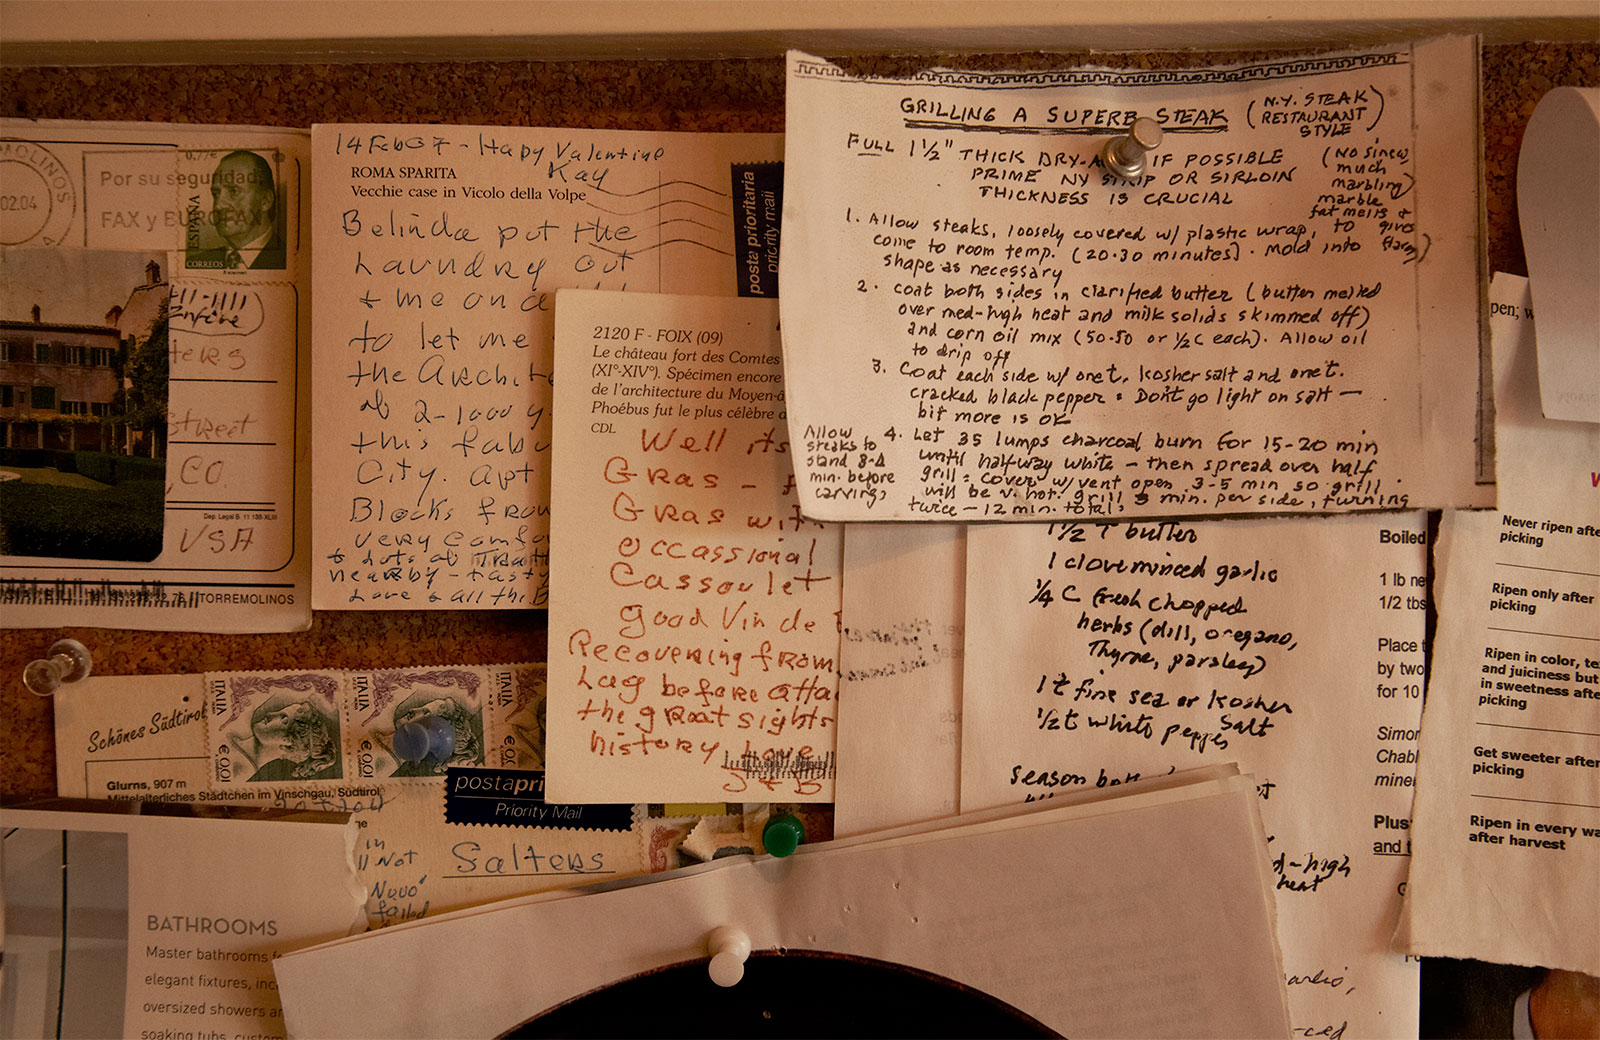 MOLINOS
02.04
Por su seguridad,
FAX y BUROFAX
0,77€
ESPAÑA
CORREOS
Street
CO.
USA
TORREMOLINOS
14 Feb 07 - Hapy Valentine
Kay
ROMA SPARITA
Vecchie case in Vicolo della Volpe
posta prioritaria
priority mail
Belinda put the
Laundry out
& me on a
to let me
the Archite
of 2-1000 y
this fabu
City. Apt
Blocks from
very comfo
& lots of
nearby - tasty
Love & all the B
2120 F - FOIX (09)
Le château fort des Comtes
(XI°-XIV°). Spécimen encore
de l'architecture du Moyen-â
Phoebus fut le plus célèbre d
CDL
Well its
Gras -
Gras with
occassional
Cassoulet
good Vin de
Recovering from
Lag before atta
the great sights
history Love
GRILLING A SUPERB STEAK (N.Y. STEAK
RESTAURANT
STYLE)
FULL 1 ½" THICK DRY-A IF POSSIBLE
PRIME NY STRIP OR SIRLOIN
THICKNESS IS CRUCIAL
(No sinew,
much
marbling)
marble
fat melts &
gives
flavor)
1. Allow steaks, loosely covered w/ plastic wrap, to
come to room temp. (20-30 minutes). Mold into
shape as necessary
2. coat both sides in clarified butter (butter melted
over med-high heat and milk solids skimmed off)
and corn oil mix (50-50 or ½C each). Allow oil
to drip off
3. Coat each side w/ one t. kosher salt and one t.
cracked black pepper. Don't go light on salt —
bit more is ok
4. Let 35 lumps charcoal burn for 15-20 min
until halfway white - then spread over half
grill. Cover w/ vent open 3-5 min so grill
will be v. hot. grill 3 min. per side, turning
twice - 12 min. total.
Allow
steaks to
stand
min. before
carving,
1½ T butter
1 clove minced garlic
¼ C fresh chopped
herbs (dill, oregano,
Thyme, parsley)
1 t fine sea or kosher
salt
½ t white pepper
season
high
heat
Boiled
1 lb ne
1/2 tbs
Place t
by two
for 10
Simor
Chabl
miner
Plus
and t
pen; w
Never ripen after
picking
Ripen only after
picking
Ripen in color, te
and juiciness but
in sweetness afte
picking
Get sweeter after
picking
Ripen in every wa
after harvest
Schönes Südtirol
Glurns, 907 m
Mittelalterliches Städtchen im Vinschgau, Südtirol
ITALIA
€0,01
ITALIA
€0,01
ITALIA
€0,0
postapri
Priority Mail
Salters
in
Not
failed
BATHROOMS
Master bathrooms f
elegant fixtures, inc
oversized showers a
soaking tubs, custom